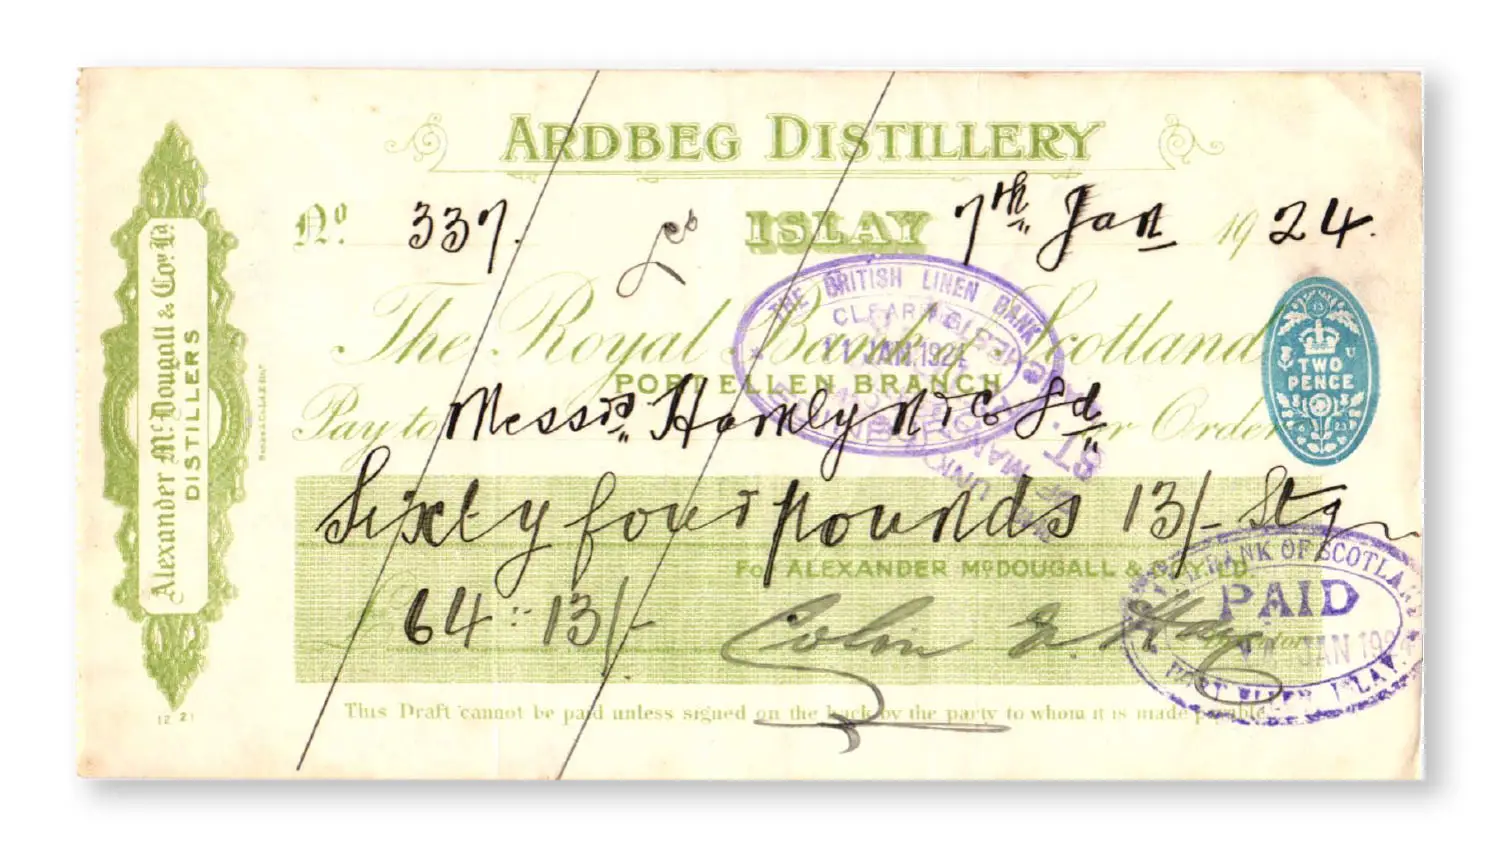 ARDBEG DISTILLERY
No. 337.
ISLAY 7th Jan 1924.
The Royal Bank of Scotland
PORT ELLEN BRANCH
Pay to Messrs Hamlyn & Co Ld or Order
Sixty four pounds 13/- Stg
For ALEXANDER McDOUGALL & COY LD.
64 : 13/-
Colin E. Hay
This Draft cannot be paid unless signed on the back by the party to whom it is made payable.
Alexander McDougall & Coy. Ld.
DISTILLERS
12 21
TWO
PENCE
THE BRITISH LINEN BANK
11 JAN. 1924
BANK OF SCOTLAND
PAID
JAN 1924
PORT ELLEN, ISLAY.